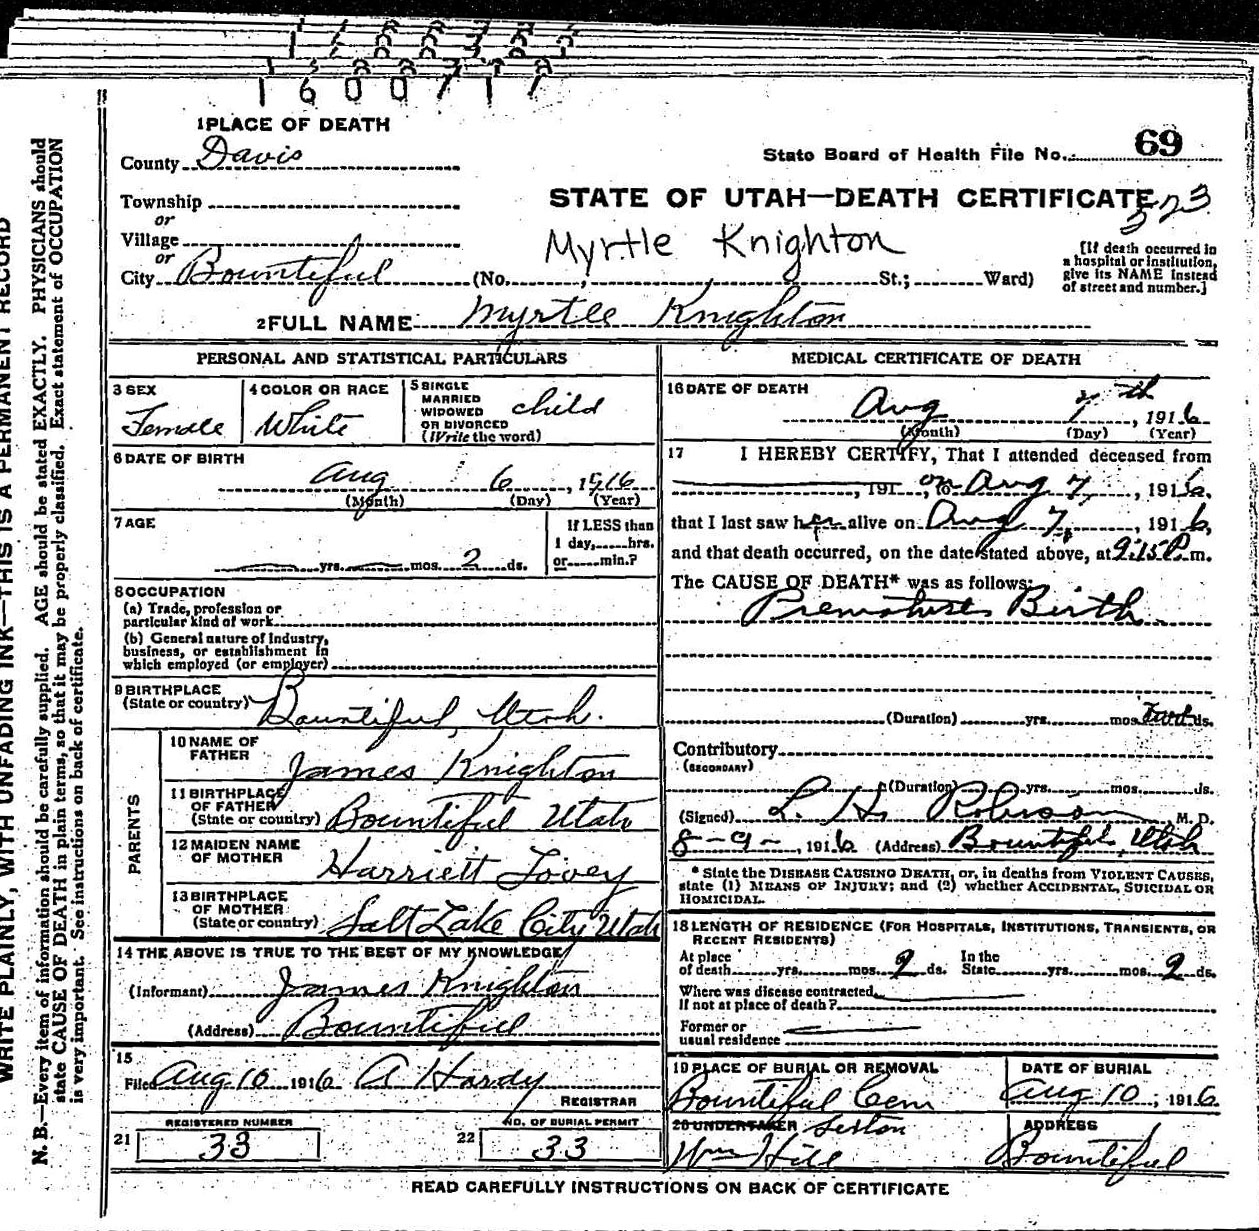 1600717
1 PLACE OF DEATH
County Davis
State Board of Health File No. 69
Township
or
Village
or
City Bountiful (No. , St.; Ward)
STATE OF UTAH—DEATH CERTIFICATE
323
Myrtle Knighton
[If death occurred in
a hospital or institution,
give its NAME instead
of street and number.]
2 FULL NAME Myrtle Knighton
PERSONAL AND STATISTICAL PARTICULARS
3 SEX
Female
4 COLOR OR RACE
White
5 SINGLE
MARRIED
WIDOWED
OR DIVORCED
(Write the word)
child
6 DATE OF BIRTH
Aug 6, 1916
(Month) (Day) (Year)
7 AGE
yrs. mos. 2 ds.
If LESS than
1 day, hrs.
or min.?
8 OCCUPATION
(a) Trade, profession or
particular kind of work
(b) General nature of Industry,
business, or establishment in
which employed (or employer)
9 BIRTHPLACE
(State or country) Bountiful, Utah.
PARENTS
10 NAME OF
FATHER James Knighton
11 BIRTHPLACE
OF FATHER
(State or country) Bountiful Utah
12 MAIDEN NAME
OF MOTHER Harriett Tovey
13 BIRTHPLACE
OF MOTHER
(State or country) Salt Lake City Utah
14 THE ABOVE IS TRUE TO THE BEST OF MY KNOWLEDGE
(Informant) James Knighton
(Address) Bountiful
15
Filed Aug 10 1916 A Hardy
REGISTRAR
REGISTERED NUMBER
21 33
NO. OF BURIAL PERMIT
22 33
MEDICAL CERTIFICATE OF DEATH
16 DATE OF DEATH
Aug 7th, 1916
(Month) (Day) (Year)
17 I HEREBY CERTIFY, That I attended deceased from
, 191 , to on Aug 7, , 1916,
that I last saw her alive on Aug 7, , 1916,
and that death occurred, on the date stated above, at 9:15 P.m.
The CAUSE OF DEATH* was as follows:
Premature Birth
(Duration) yrs. mos. ds.
Contributory
(SECONDARY)
(Duration) yrs. mos. ds.
(Signed) L. H. Robinson, M. D.
8-9-, 1916 (Address) Bountiful, Utah
* State the DISEASE CAUSING DEATH, or, in deaths from VIOLENT CAUSES,
state (1) MEANS OF INJURY; and (2) whether ACCIDENTAL, SUICIDAL OR
HOMICIDAL.
18 LENGTH OF RESIDENCE (FOR HOSPITALS, INSTITUTIONS, TRANSIENTS, OR
RECENT RESIDENTS)
At place
of death yrs. mos. 2 ds.
In the
State yrs. mos. 2 ds.
Where was disease contracted,
If not at place of death?
Former or
usual residence
19 PLACE OF BURIAL OR REMOVAL
Bountiful Cem
DATE OF BURIAL
Aug 10, 1916
20 UNDERTAKER Sexton
Wm Hill
ADDRESS
Bountiful
READ CAREFULLY INSTRUCTIONS ON BACK OF CERTIFICATE
WRITE PLAINLY, WITH UNFADING INK—THIS IS A PERMANENT RECORD
N. B.—Every item of information should be carefully supplied. AGE should be stated EXACTLY. PHYSICIANS should
state CAUSE OF DEATH in plain terms, so that it may be properly classified. Exact statement of OCCUPATION
is very important. See instructions on back of certificate.